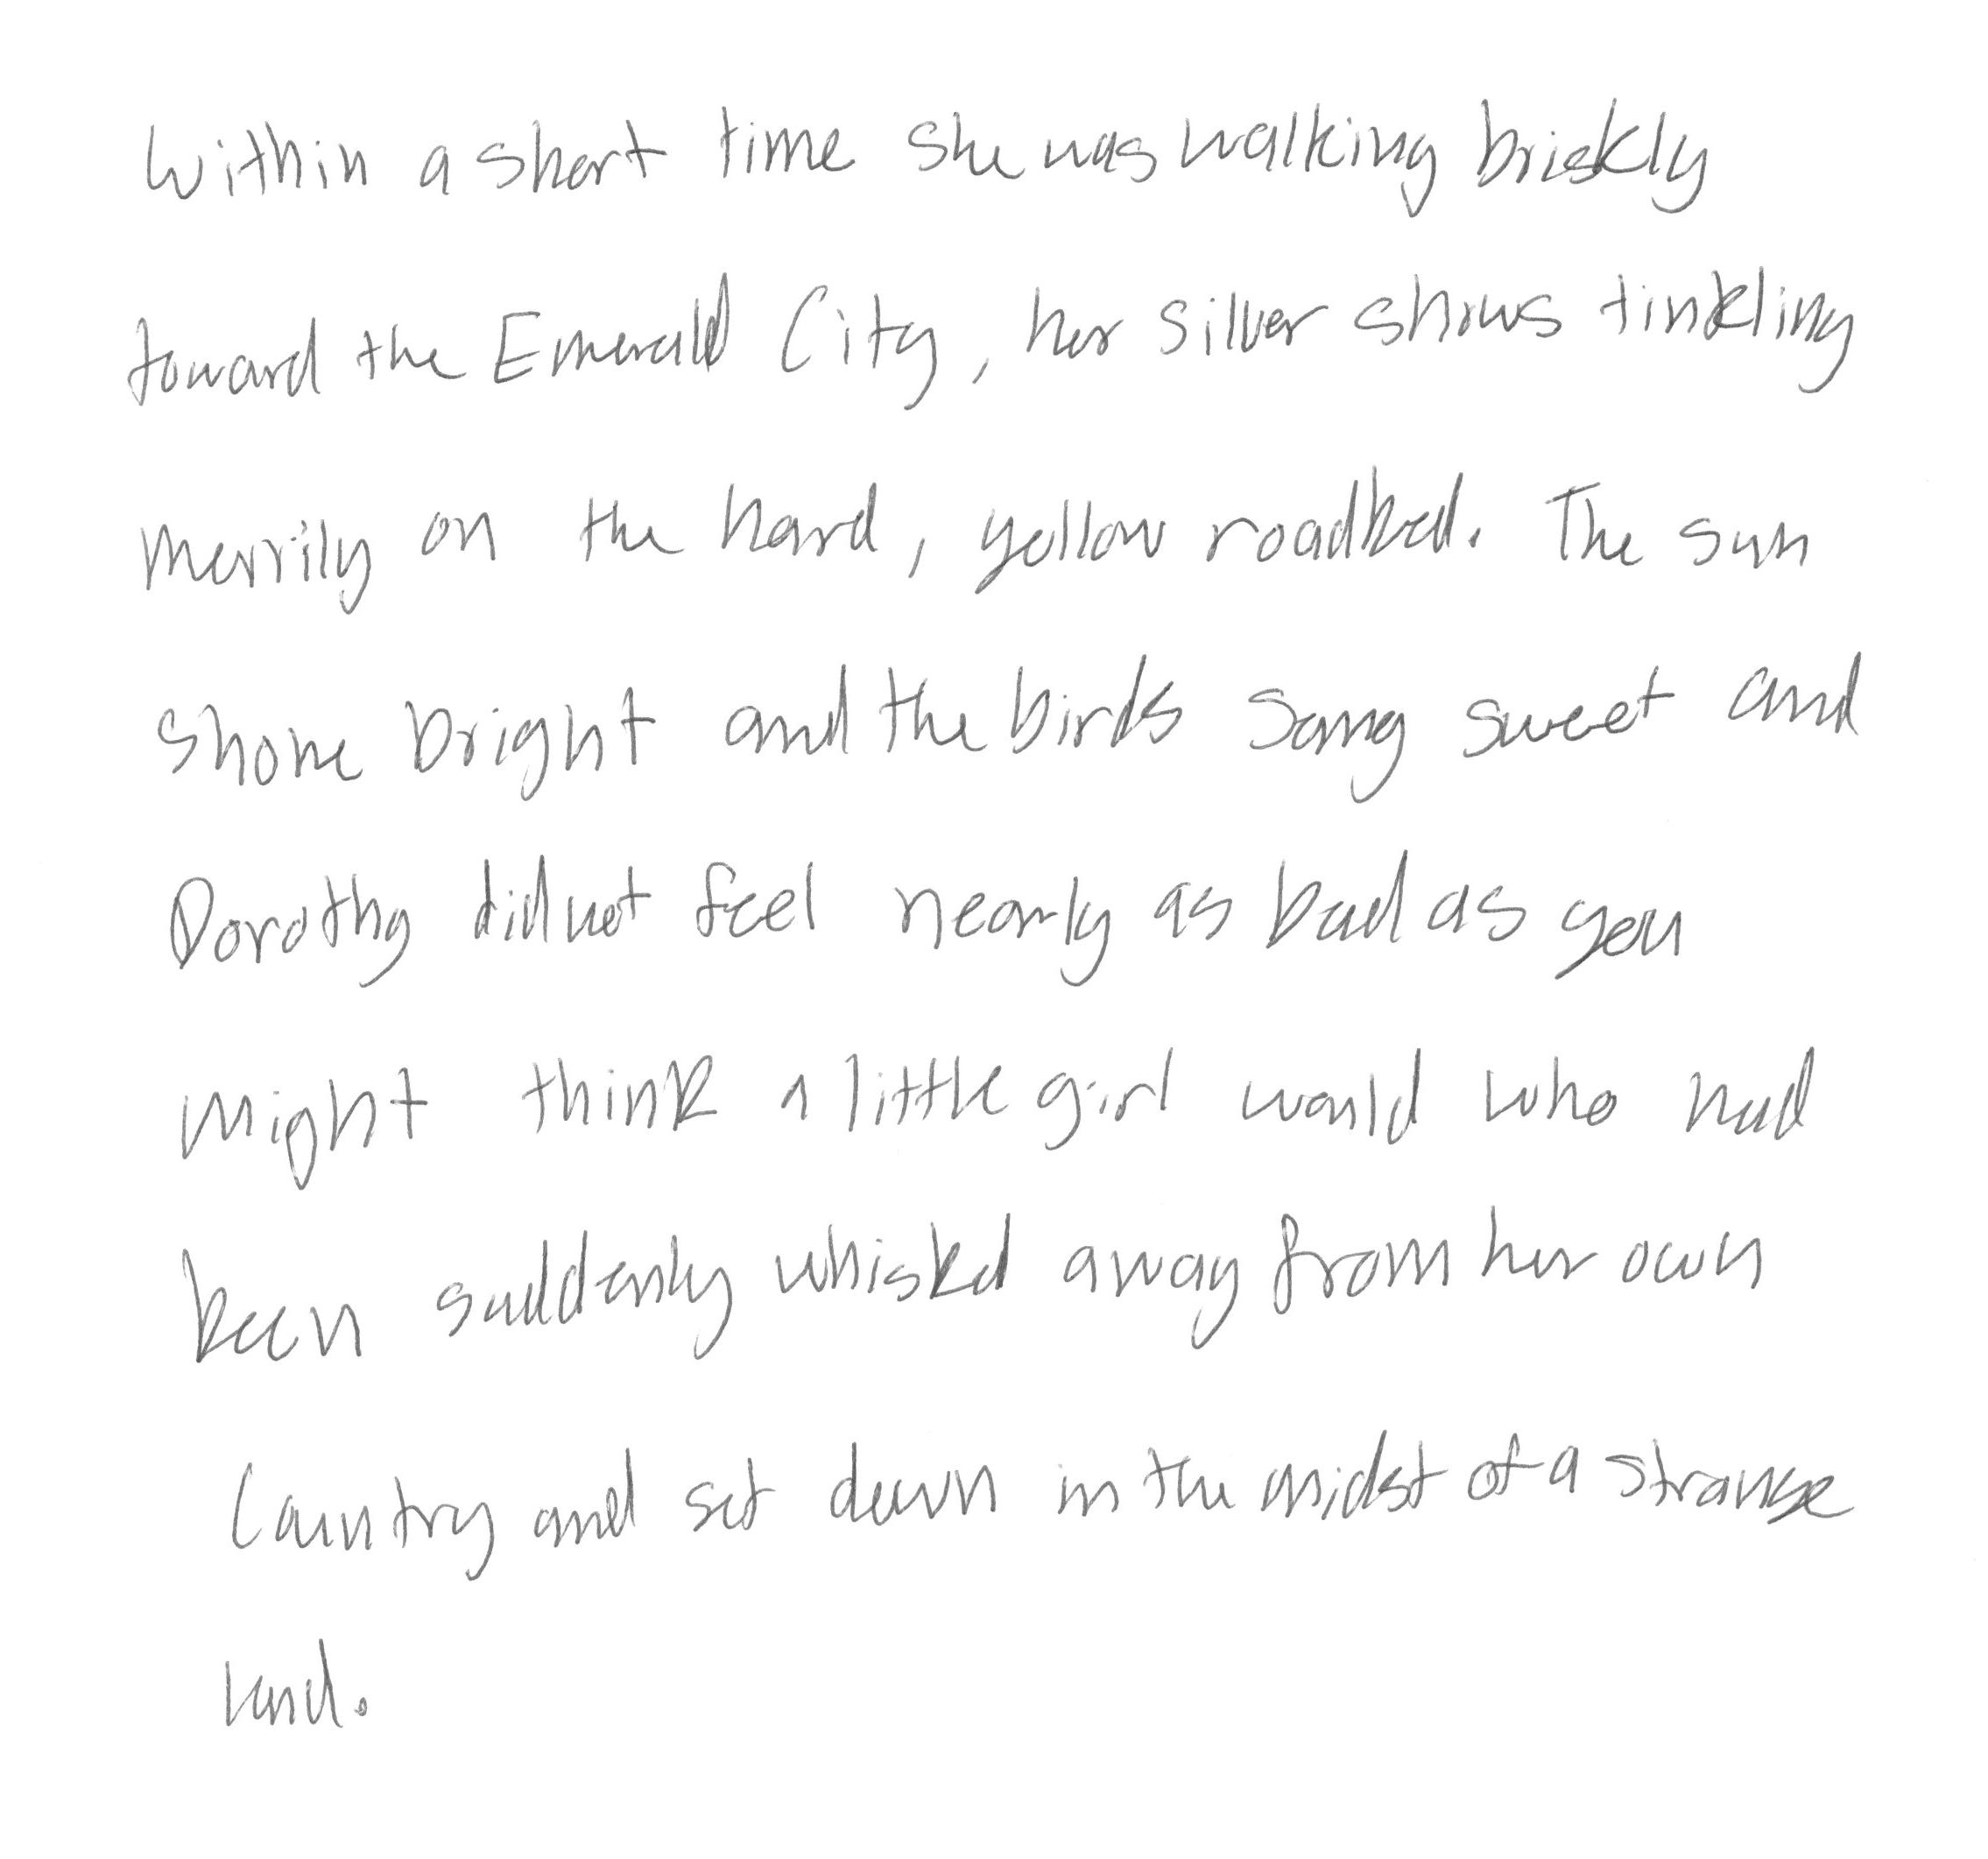 Within a short time she was walking briskly
toward the Emerald City, her silver shoes tinkling
merrily on the hard, yellow roadbed. The sun
shone bright and the birds sang sweet and
Dorothy did not feel nearly as bad as you
might think a little girl would who had
been suddenly whisked away from her own
country and set down in the midst of a strange
land.